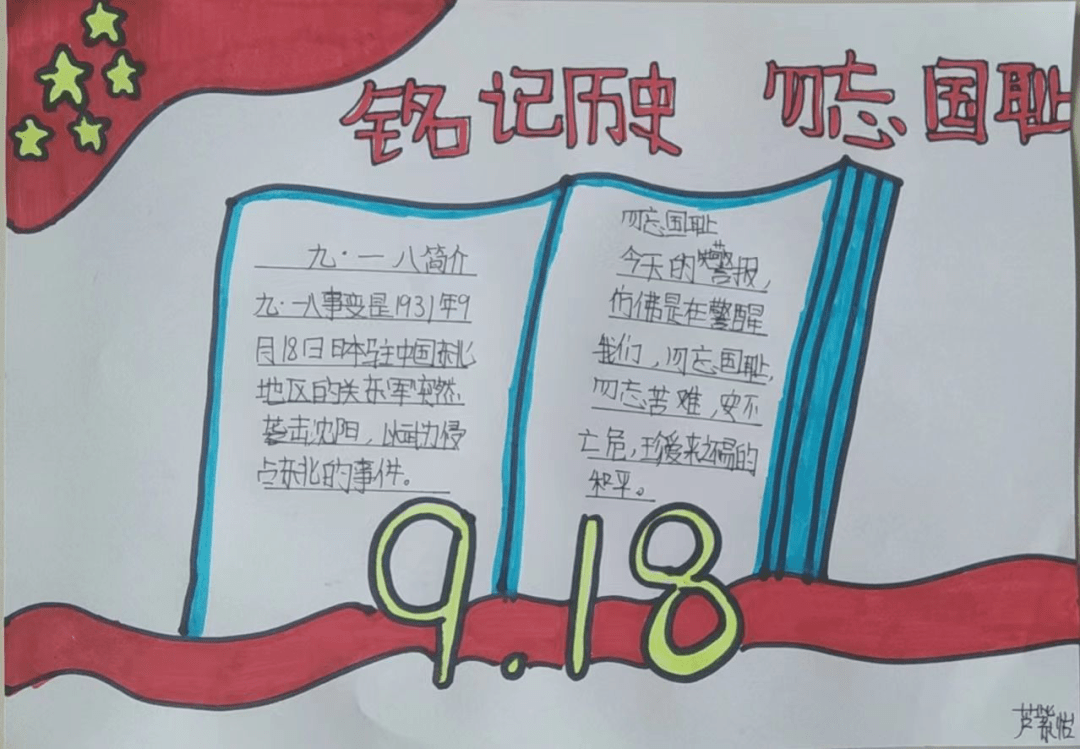 铭记历史 勿忘国耻
九·一八简介
九·一八事变是1931年9
月18日日本驻中国东北
地区的关东军突然
袭击沈阳，以武力侵
占东北的事件。
勿忘国耻
今天的警报，
仿佛是在警醒
我们，勿忘国耻，
勿忘苦难，安不
亡危，珍爱来之不易的
和平。
9.18